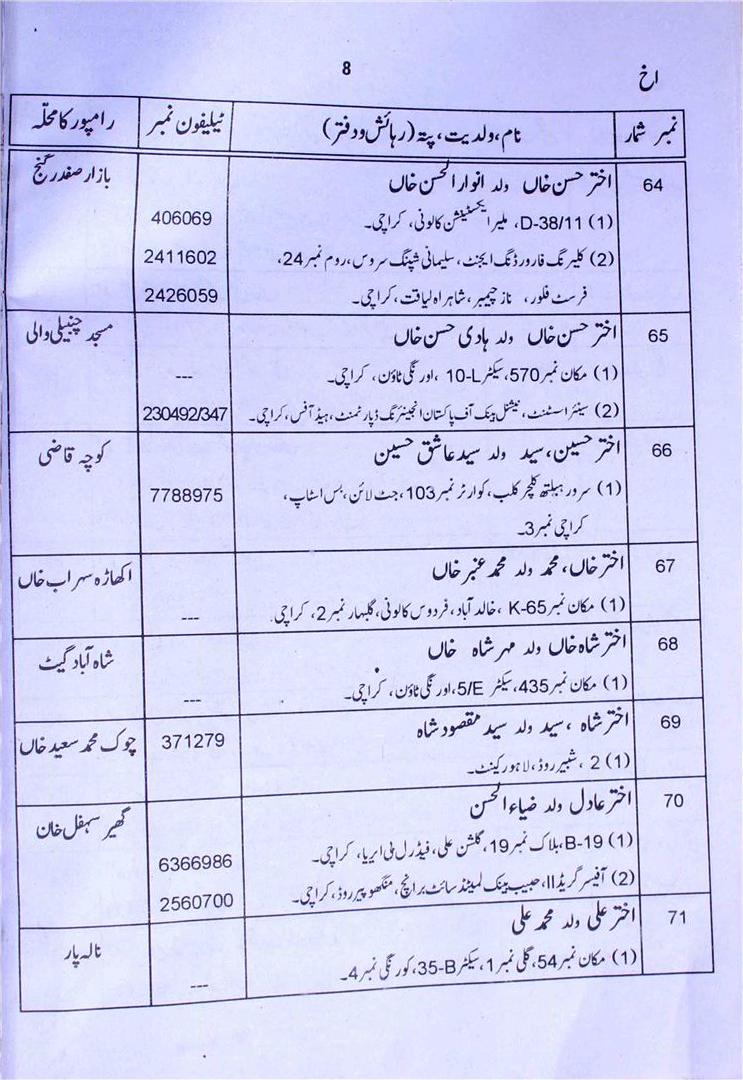 8
اخ
نمبر شمار نام، ولدیت، پتہ (رہائش و دفتر) ٹیلیفون نمبر رامپور کا محلّہ
64 اختر حسن خاں ولد انوار الحسن خاں بازار صفدر گنج
(1) D-38/11، ملیر ایکسٹینشن کالونی، کراچی۔ 406069
(2) کلیرنگ فارورڈنگ ایجنٹ، سلیمانی شپنگ سروس، روم نمبر 24، 2411602
فرسٹ فلور، ناز چیمبر، شاہراہ لیاقت، کراچی۔ 2426059
65 اختر حسن خاں ولد ہادی حسن خاں مسجد چنبیلی والی
(1) مکان نمبر 570، سیکٹر 10-L، اورنگی ٹاؤن، کراچی۔ ---
(2) سینئر اسسٹنٹ، نیشنل بینک آف پاکستان انجینئرنگ ڈپارٹمنٹ، ہیڈ آفس، کراچی۔ 230492/347
66 اختر حسین، سید ولد سید عاشق حسین کوچہ قاضی
(1) سرور ہیلتھ کلچر کلب، کوارٹر نمبر 103، جٹ لائن، بس اسٹاپ، 7788975
کراچی نمبر 3۔
67 اختر خاں، محمد ولد محمد عنبر خاں اکھاڑہ سہراب خاں
(1) مکان نمبر K-65، خالد آباد، فردوس کالونی، گلبہار نمبر 2، کراچی۔ ---
68 اختر شاہ خاں ولد مہر شاہ خاں شاہ آباد گیٹ
(1) مکان نمبر 435، سیکٹر 5/E، اورنگی ٹاؤن، کراچی۔ ---
69 اختر شاہ، سید ولد سید مقصود شاہ 371279 چوک محمد سعید خاں
(1) 2، شبیر روڈ، لاہور کینٹ۔
70 اختر عادل ولد ضیاء الحسن گھیر سہفل خان
(1) B-19، بلاک نمبر 19، گلشن علی، فیڈرل بی ایریا، کراچی۔ 6366986
(2) آفیسر گریڈ II، حبیب بینک لمیٹڈ سائٹ برانچ، منگھوپیر روڈ، کراچی۔ 2560700
71 اختر علی ولد محمد علی نالہ پار
(1) مکان نمبر 54، گلی نمبر 1، سیکٹر 35-B، کورنگی نمبر 4۔ ---